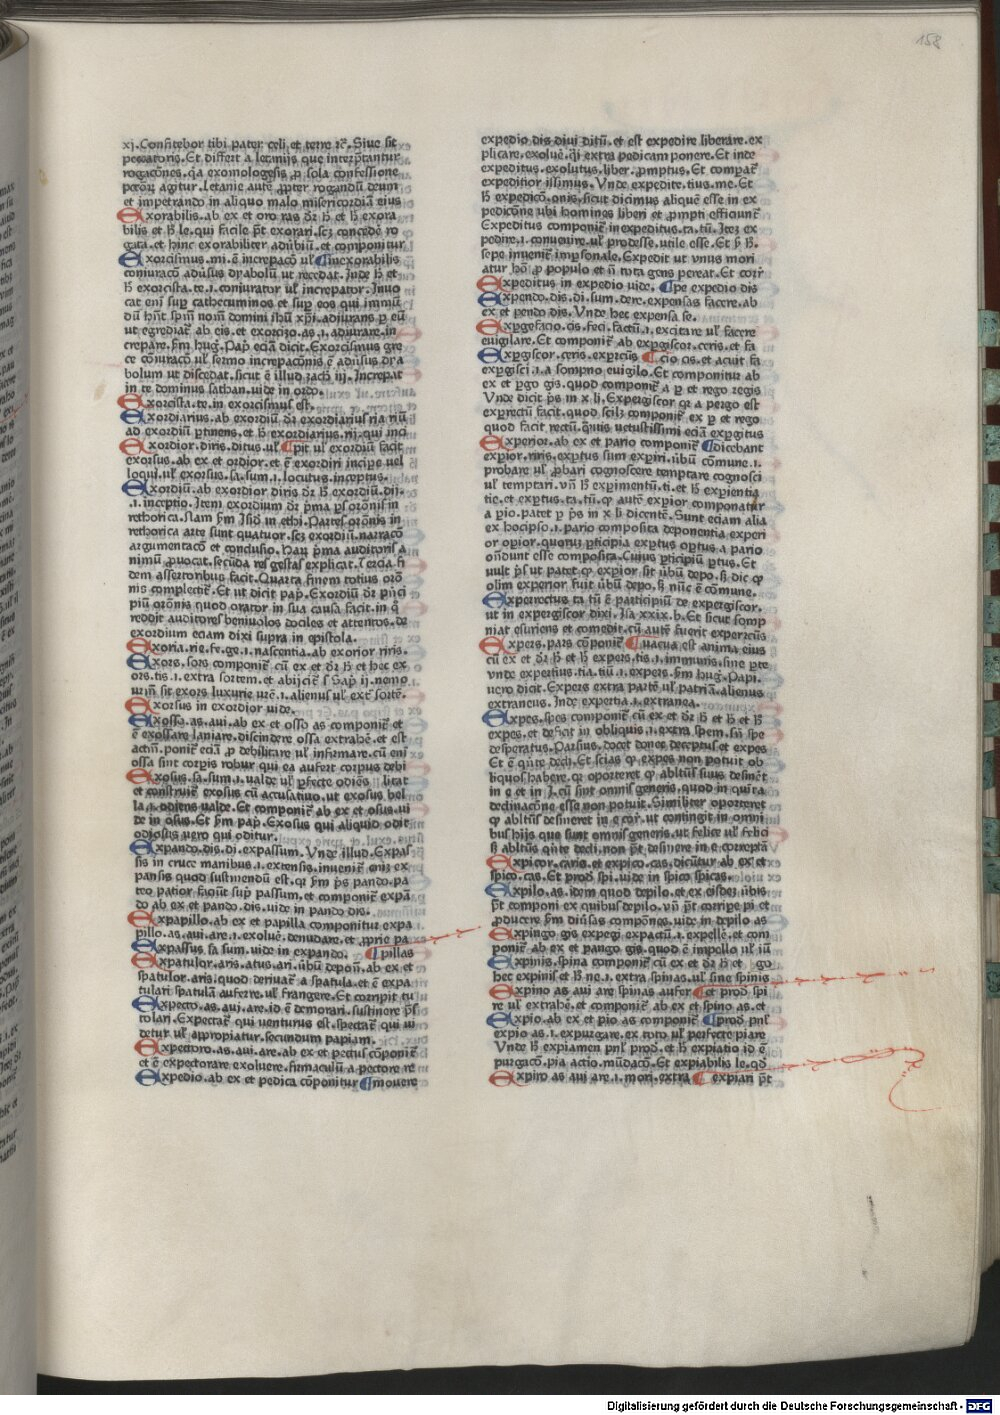 158
xj. Confitebor tibi pater celi et terre rc̄. Siue sit
peccatoris. Et differt a letanijs que interp̄tantur
rogacōnes. q̄a exomologesis ꝓ sola confessione
pctōꝝ agitur. Letanie autē ꝓpter rogandū deum
et impetrando in aliquo malo misericordiā eius
Exorabilis. ab ex et oro ras dr̄ hᷣ et hᷣ exora
bilis et hᷣ le. qui facile pt̄ exorari. scz concedē ro
gata. et hinc exorabiliter aduībiū. et componitur
Exorcismus. mi. ē increpacō ul̄ ¶ inexorabilis
coniuracō aduīsus dyabolū ut recedat. Inde hᷣ et
hᷣ exorcista. te. i. coniurator ul̄ increpator. Inuo
cat eni sup̄ cathecuminos et sup̄ eos qui immū
dū hn̄t sp̄m nom̄ domini ihū xp̄i. adiurans ꝑ eū
ut egrediat̄ ab eis. et exorcizo. as. i. adiurare. in
crepare. fm̄ hug. Pap̄ eciā dicit. Exorcismus gre
ce cōiuracō ul̄ sermo increpacōnis ē aduīsus dya
bolum ut discedat. sicut ē illud zach iij. Increpat
in te dominus sathan. uide in ordo.
Exorcista. te. in exorcismus est.
Exordiarius. ab exordiū dr̄ exordiarius ria riū
ad exordiū ꝑtinens. et hᷣ exordiarius. rij. qui inci
Exordior. diris. ditus. ul̄ ¶ pit ul̄ exordiū facit
exorsus. ab ex et ordior. et ē exordiri incipe uel
loqui. ul̄ exorsus. sa. sum. i. locutus. inceptus.
Exordiū. ab exordior diris dr̄ hᷣ exordiū. dij.
.i. inceptio. Item exordium dr̄ p̄ma ꝑs orōnis in
rethorica. Nam fm̄ Isid in ethi. Partes orōnis in
rethorica arte sunt quatuor. scz exordiū. narracō
argumentacō et conclusio. Harꝝ p̄ma auditoris a
nimū ꝓuocat. secūda res gestas explicat. Tercia fi
dem assertonibus facit. Quarta finem totius orō
nis complectit̄. Et ut dicit pap̄. Exordiū dr̄ p̄nci
piū orōnis quod orator in sua causa facit. in q̄
reddit auditores beniuolos dociles et attentos. de
exordium eciam dixi supra in epistola.
Exoria. rie. fe. ge. i. nascentia. ab exorior riris.
Exors. sors componit̄ cū ex et dr̄ hᷣ et hec ex
ors. tis. i. extra sortem. et abijcit̄ s̄ Sap̄ ij. nemo
ur̄m sit exors luxurie ur̄e. i. alienus ul̄ ext̄ sortē.
Exorsus in exordior uide.
Exosso. as. aui. ab ex et osso as componit̄ et
ē exossare laniare. discindere ossa extrahē. et est
actiū. ponit̄ eciā ꝓ debilitare ul̄ infirmare. cū eni
ossa sint corꝑis robur qui ea aufert corpus debi
Exosus. sa. sum. i. ualde ul̄ ꝑfecte odiēs ¶ litat
et construit̄ exosus cū accusatiuo. ut exosus bel
la. i. odiens ualde. Et componit̄ ab ex et osus. ui
de in osus. Et fm̄ pap̄. Exosus qui aliquid odit
odiosus uero qui oditur.
Expando. dis. di. expassum. Vnde illud. Expas
sis in cruce manibus. i. extensis. inuenit̄ eniz ex
pansis quod sustinendū est. qr̄ fm̄ p̄s pando. pa
teo patior faciūt sup̄ passum. et componit̄ expā
do ab ex et pando. dis. uide in pando dis.
Expapillo. ab ex et papilla componitur expa
pillo. as. aui. are. i. exoluē. denudare. et ꝓprie pa
Expassus. sa. sum. uide in expando. ¶ pillas
Expatulor. aris. atus. ari. ūbū depoñ. ab ex et
spatulor. aris. quod deriuat̄ a spatula. et ē expa
tulari spatulā auferre. ul̄ frangere. Et corripit tu
Expecto. as. aui. are. id ē demorari. sustinere p̄s
tolari. Expectat̄ qui uenturus est. spectat̄ qui ui
detur ul̄ appropiatur. secundum papiam.
Expectoro. as. aui. are. ab ex et pectus cōponit̄
et ē expectorare exoluere. firmaculū a pectore re
Expedio. ab ex et pedica cōponitur ¶ mouere
expedio dis diui ditū. et est expedire liberare. ex
plicare. exoluē. q̄i extra pedicam ponere. Et inde
expeditus. exolutus. liber. ꝓmptus. Et compat̄
expeditior issimus. Vnde expedite. tius. me. Et
hᷣ expedicō. onis. sicut dicimus aliquē esse in ex
pedicōne ubi homines liberi et ꝓmpti efficiunt̄
Expeditus componit̄ inexpeditus. ta. tū. Itez ex
pedire. i. conuenire. ul̄ prodesse. utile esse. Et ꝑ hᷣ.
sepe inuenit̄ imꝑsonale. Expedit ut vnus mori
atur hō ꝓ populo et n̄ tota gens pereat. Et corr̄
Expeditus in expedio uide. ¶ pe expedio dis
Expendo. dis. di. sum. dere. expensas facere. ab
ex et pendo dis. Vnde hec expensa se.
Expgefacio. cis. feci. factū. i. excitare ul̄ facere
euigilare. Et componit̄ ab expgiscor. ceris. et fa
Expgiscor. ceris. expertus ¶ cio cis. et acuit fa
expgisci. i. a sompno euigilo. Et componitur ab
ex et ꝑgo gis. quod componit̄ a ꝑ et rego regis
Vnde dicit p̄s in x. li. Expergiscor qr̄ a pergo est
exprectū facit. quod scilz componit̄ ex ꝑ et rego
quod facit rectū. q̄uis uetustissimi eciā expgitus
Experior. ab ex et pario componit̄ ¶ dicebant
expior. riris. exptus sum expiri. ūbū cōmune. i.
probare ul̄ ꝓbari cognoscere temptare cognosci
ul̄ temptari. vn̄ hᷣ expimentū. ti. et hᷣ expientia
tie. et exptus. ta. tū. ꝙ autē expior componatur
a pio. patet ꝑ p̄s in x li dicentē. Sunt eciam alia
ex hoc ipso. i. pario composita deponentia experi
or opior. quoruꝫ ꝑticipia exptus optus a pario
on̄dunt esse composita. Cuius ꝑticipiū ꝑtus. Et
uult p̄s ut patet ꝙ expior sit ūbū depo. s̄ dic ꝙ
olim experior fuit ūbū depo. s̄ nūc ē cōmune.
Experrectus ta tū ē participiū de expergiscor.
ut in expergiscor dixi. Isa xxix. b. Et sicut somp
niat esuriens et comedit. cū autē fuerit experectus
Expers. pars cōponit̄ ¶ uacua est anima eius
cū ex et dr̄ hᷣ et hᷣ expers. tis. i. immunis. sine ꝑte
vnde expertius. tia. tiū. i. expers. fm̄ hug. Papi.
uero dicit. Expers extra partē ul̄ patriā. alienus
extraneus. Inde expertia. i. extranea.
Expes. spes componit̄ cū ex et dr̄ hᷣ et hᷣ et hᷣ
expes. et deficit in obliquis. i. extra spem. sn̄ spe
desperatus. Parsius. docet donec deceptus et expes
Et ē q̄nte decli. Et scias ꝙ expes non potuit ob
liquos habere. qr̄ oporteret ꝙ ablt̄us suus desinēt
in e et in i. cū sint omnis generis. quod in quinta
declinacōne esse non potuit. Similiter oporteret
ꝙ ablt̄us desineret in e cor̄. ut contingit in omni
bus hijs que sunt omnis generis. ut felice ul̄ felici
s̄ ablt̄us q̄nte decli. non pt̄ desinere in e correptā
Expicor. caris. et expico. cas. dicūtur ab ex et
spico. cas. Et prod̄ spi. uide in spico spicas.
Expilo. as. idem quod depilo. et ex eisdez ūbis
pt̄ componi ex quibus depilo. vn̄ pt̄ corripe pi et
ꝓducere fm̄ diuīsas compōnes. uide in depilo as
Expingo gis expegi expactū. i. expellē. et com
ponit̄ ab ex et pango gis. quod ē impollo ul̄ iū
Expinis. spina componit̄ cū ex et dr̄ hᷣ et ¶ go
hec expinis et hᷣ ne. i. extra spinas. ul̄ sine spinis
Expino as aui are spinas aufer ¶ et prod̄ spi
re ul̄ extrahē. et componit̄ ab ex et spino. as. et
Expio. ab ex et pio as componit̄ ¶ prod̄ pnl̄
expio as. i. expurgare. ex toto ul̄ perfecte piare
Vnde hᷣ expiamen pnl̄ prod̄. et hᷣ expiatio id ē
purgacō. pia actio. mūdacō. Et expiabilis le. qd̄
Expiro as aui are. i. mori. extra ¶ expiari pt̄
Digitalisierung gefördert durch die Deutsche Forschungsgemeinschaft - DFG